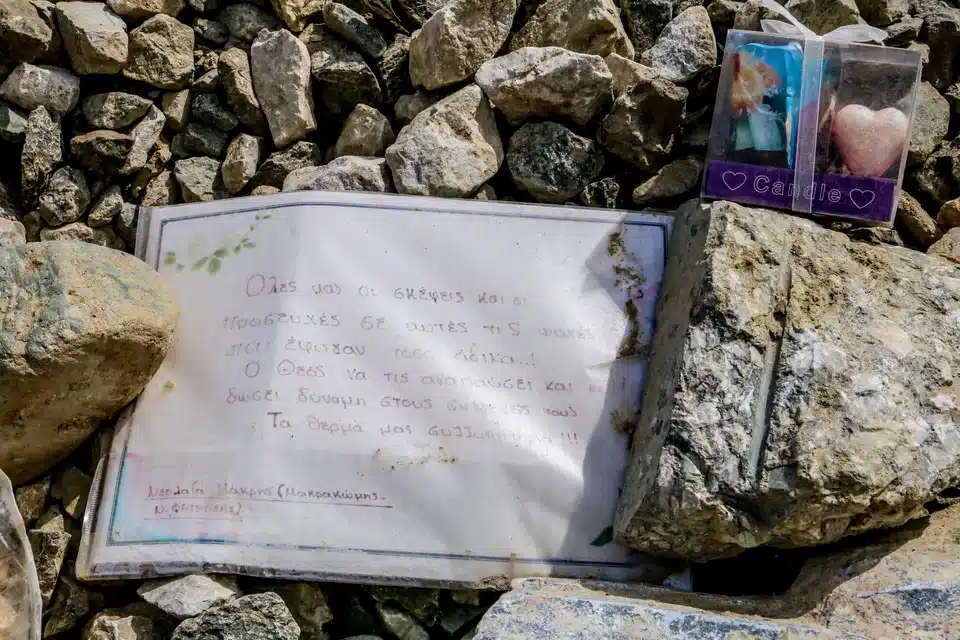 Όλες μας οι σκέψεις και οι
προσευχές σε αυτές τις ψυχές
που έφυγαν τόσο άδικα..!
Ο Θεός να τις αναπαύσει και
δώσει δύναμη στους τους
Τα θερμά μας συλλυπητήρια!!!
Νεολαία Μάκρης (Μακρακώμης-
Ν. Φθιώτιδας)
Candle